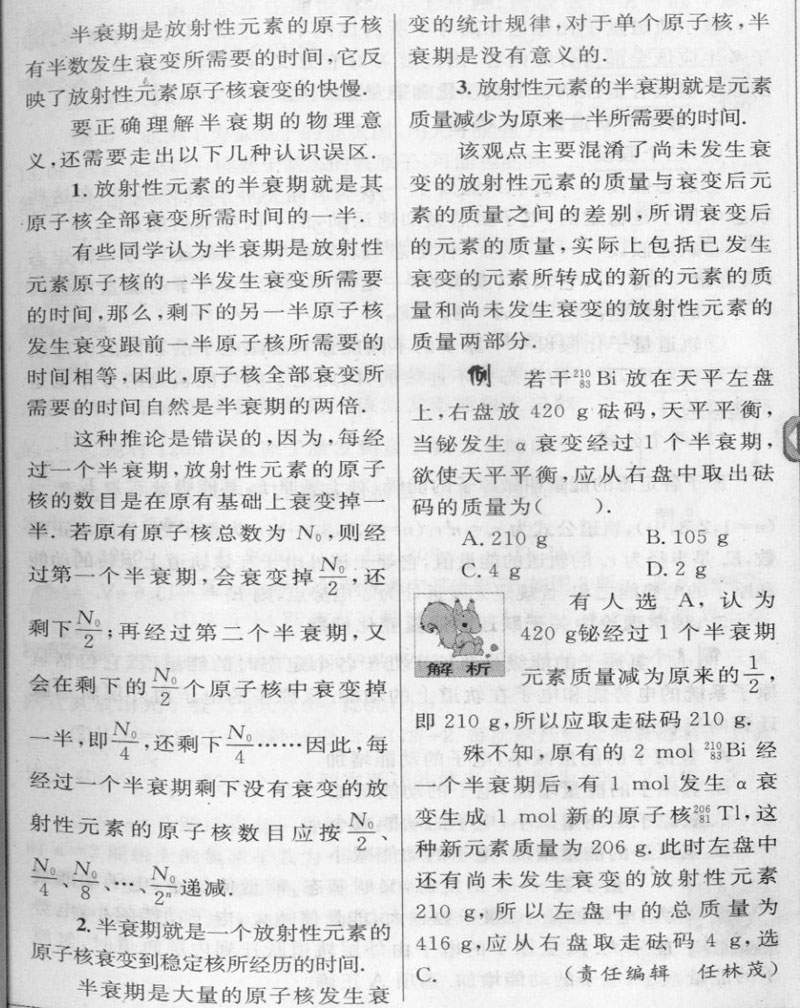 半衰期是放射性元素的原子核
有半数发生衰变所需要的时间,它反
映了放射性元素原子核衰变的快慢.
要正确理解半衰期的物理意
义,还需要走出以下几种认识误区.
1.放射性元素的半衰期就是其
原子核全部衰变所需时间的一半.
有些同学认为半衰期是放射性
元素原子核的一半发生衰变所需要
的时间,那么,剩下的另一半原子核
发生衰变跟前一半原子核所需要的
时间相等,因此,原子核全部衰变所
需要的时间自然是半衰期的两倍.
这种推论是错误的,因为,每经
过一个半衰期,放射性元素的原子
核的数目是在原有基础上衰变掉一
半.若原有原子核总数为 N₀,则经
过第一个半衰期,会衰变掉N₀/2,还
剩下N₀/2;再经过第二个半衰期,又
会在剩下的N₀/2个原子核中衰变掉
一半,即N₀/4,还剩下N₀/4……因此,每
经过一个半衰期剩下没有衰变的放
射性元素的原子核数目应按N₀/2、
N₀/4、N₀/8、…、N₀/2ⁿ递减.
2.半衰期就是一个放射性元素的
原子核衰变到稳定核所经历的时间.
半衰期是大量的原子核发生衰
变的统计规律,对于单个原子核,半
衰期是没有意义的.
3.放射性元素的半衰期就是元素
质量减少为原来一半所需要的时间.
该观点主要混淆了尚未发生衰
变的放射性元素的质量与衰变后元
素的质量之间的差别,所谓衰变后
的元素的质量,实际上包括已发生
衰变的元素所转成的新的元素的质
量和尚未发生衰变的放射性元素的
质量两部分.
例 若干²¹⁰₈₃Bi 放在天平左盘
上,右盘放 420 g 砝码,天平平衡,
当铋发生 α 衰变经过 1 个半衰期,
欲使天平平衡,应从右盘中取出砝
码的质量为( ).
A. 210 g B. 105 g
C. 4 g D. 2 g
解析
有人选 A,认为
420 g铋经过 1 个半衰期
元素质量减为原来的1/2,
即 210 g,所以应取走砝码 210 g.
殊不知,原有的 2 mol ²¹⁰₈₃Bi 经
一个半衰期后,有 1 mol 发生 α 衰
变生成 1 mol 新的原子核²⁰⁶₈₁Tl,这
种新元素质量为 206 g.此时左盘中
还有尚未发生衰变的放射性元素
210 g,所以左盘中的总质量为
416 g,应从右盘取走砝码 4 g,选
C. (责任编辑 任林茂)